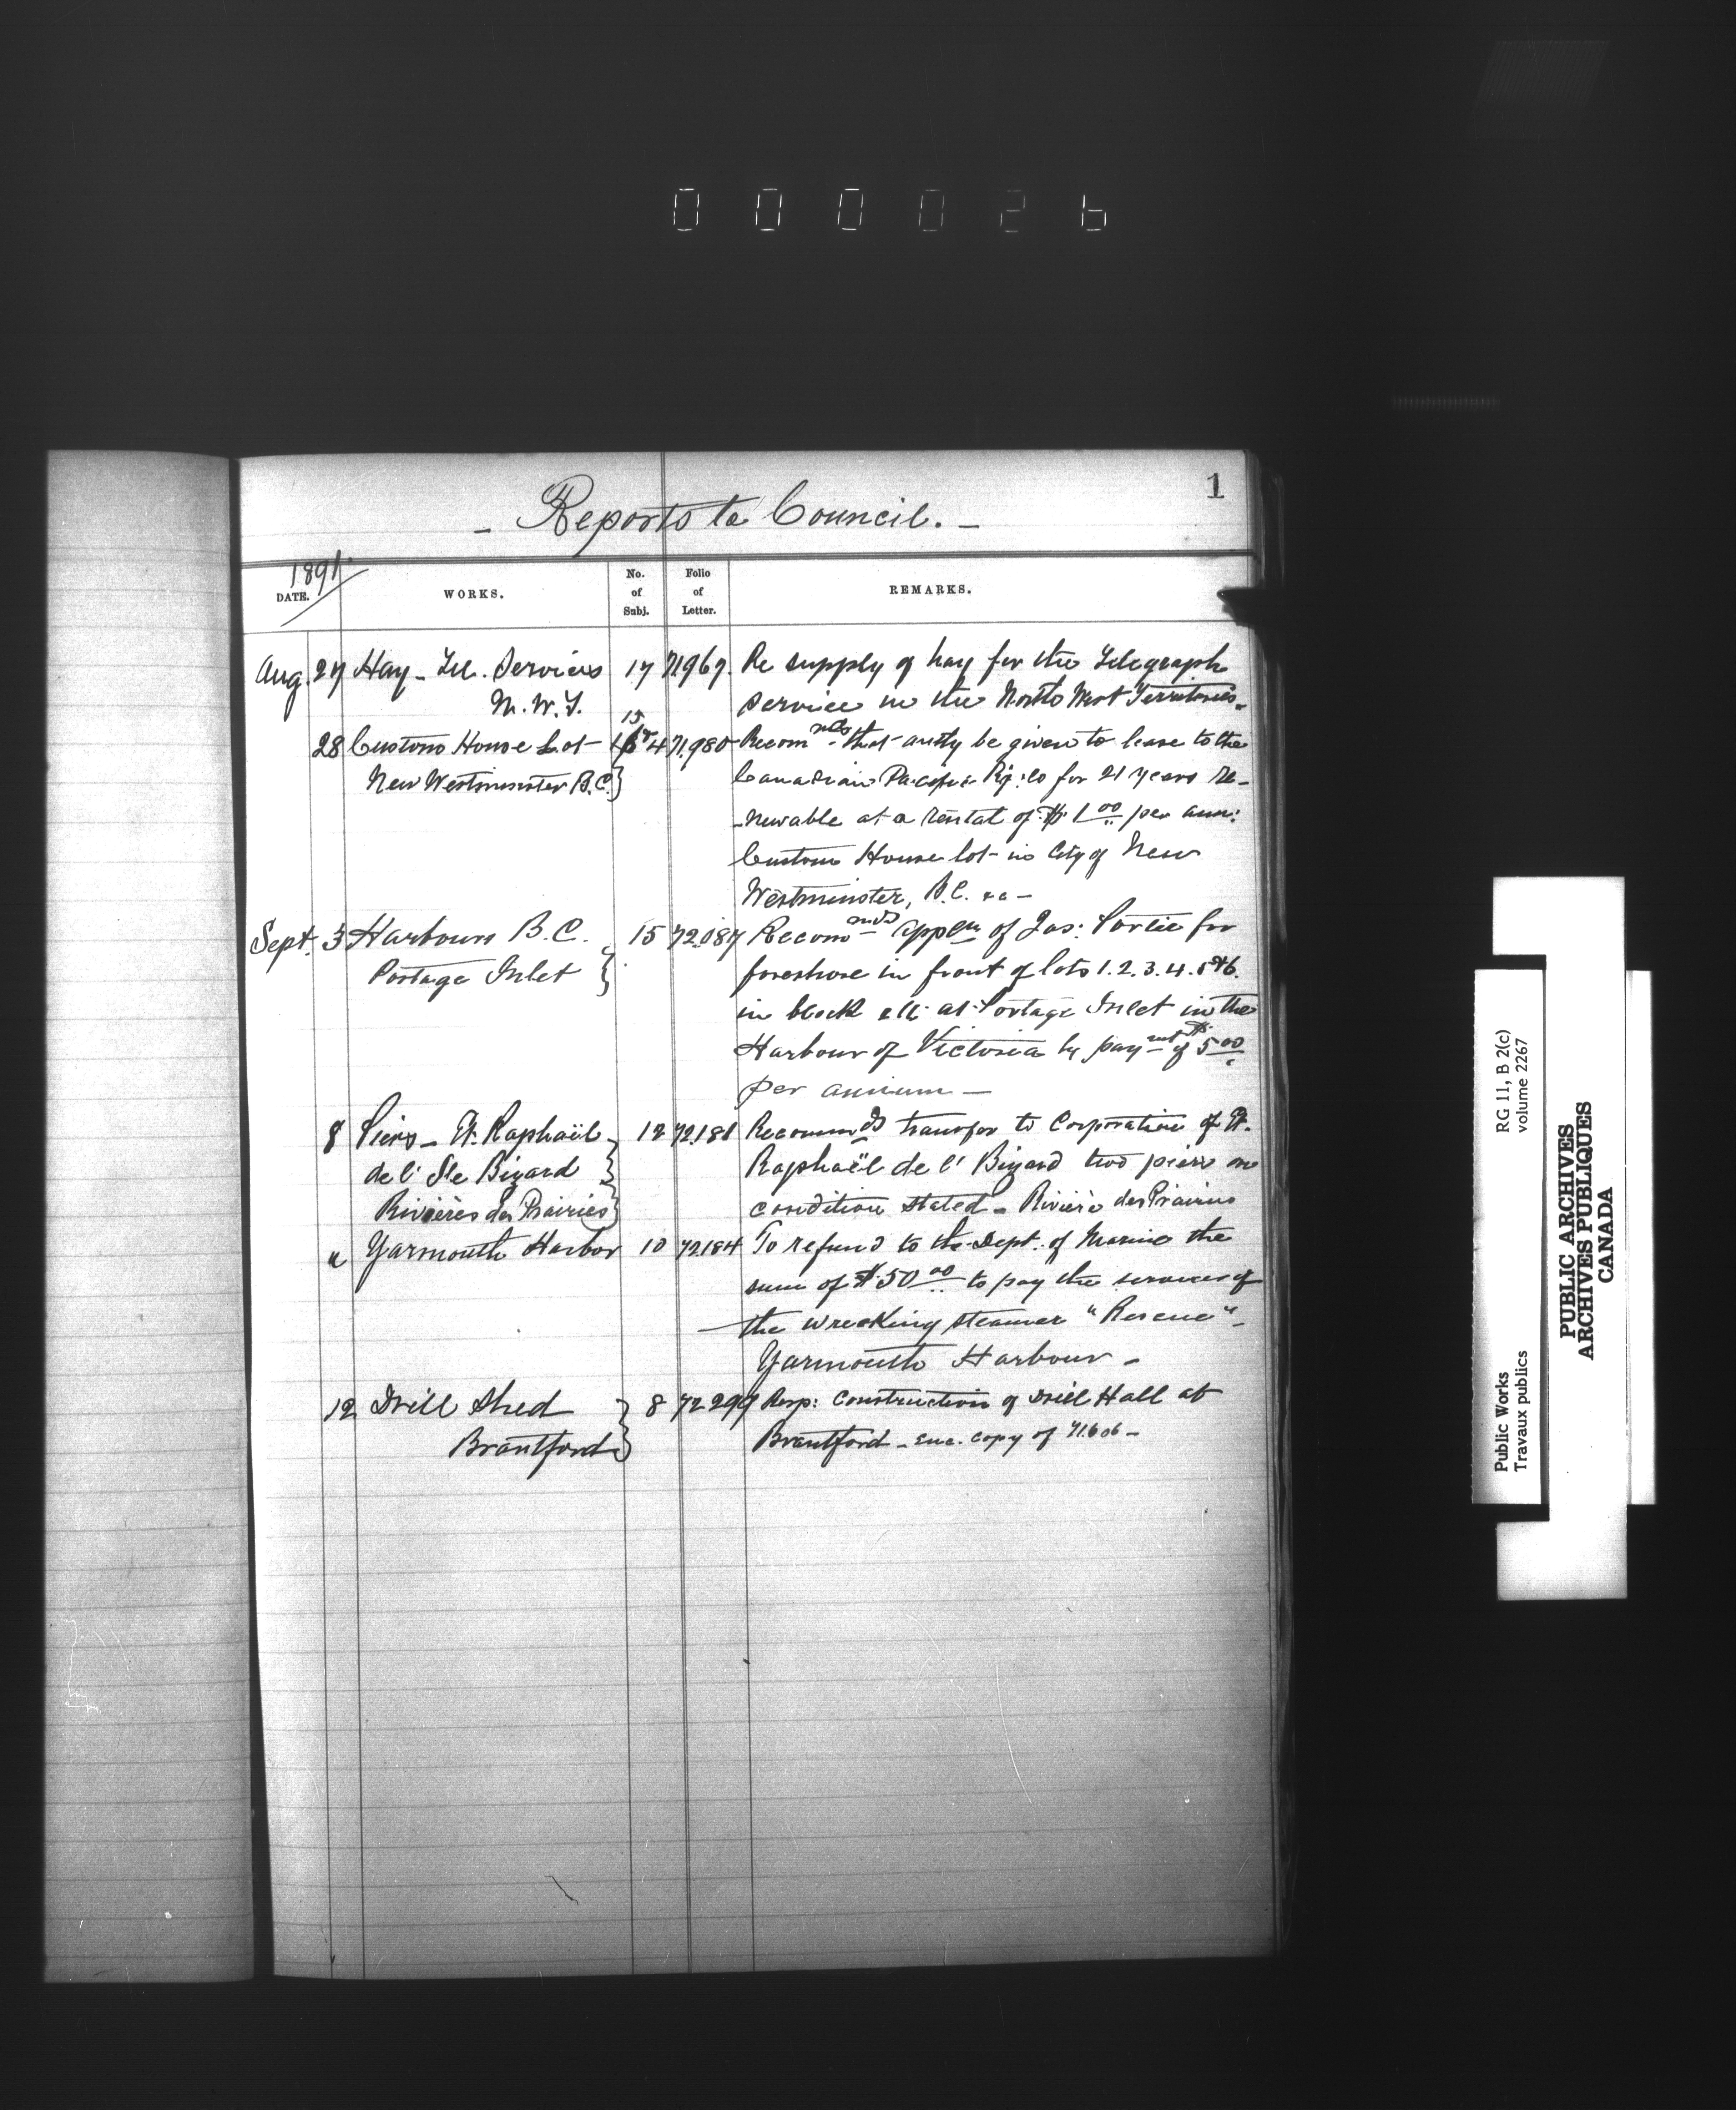 000026
1
- Reports to Council. -
1891
DATE.
WORKS.
No. of Subj.
Folio of Letter.
REMARKS.
Aug. 27 Hay - Tel. Services 17 71967. Re supply of hay for the Telegraph
N. W. T. service in the North West Territories.
15
28 Customs House Lot 4 71,980 Recomnds that authy be given to lease to the
New Westminster B.C. } Canadian Pacific Ry. Co for 21 years re-
-newable at a rental of $1 00 per ann:
Custom House lot in City of New
Westminster, B.C. &a -
Sept. 3 Harbours B.C. 15 72.087 Recomnds appln of Jas: Portie for
Portage Inlet } foreshore in front of lots 1.2.3.4.5 & 6.
in block at Portage Inlet in the
Harbour of Victoria by paymt of $5 00
per annum -
8 Piers - St. Raphaël 12 72.181 Recommds transfer to Corporation of St.
de l' Ile Bizard } Raphaël de l' Bizard two piers on
Rivières des Prairies } condition stated - Rivière des Prairies
" Yarmouth Harbor 10 72184 To refund to the Dept. of Marine the
sum of $50 00 to pay the services of
the wrecking steamer "Rescue" -
Yarmouth Harbour -
12 Drill Shed } 8 72299 Resp: Construction of Drill Hall at
Brantford } Brantford - enc. copy of 71.606 -
RG 11, B 2(c)
volume 2267
Public Works
Travaux publics
PUBLIC ARCHIVES
ARCHIVES PUBLIQUES
CANADA